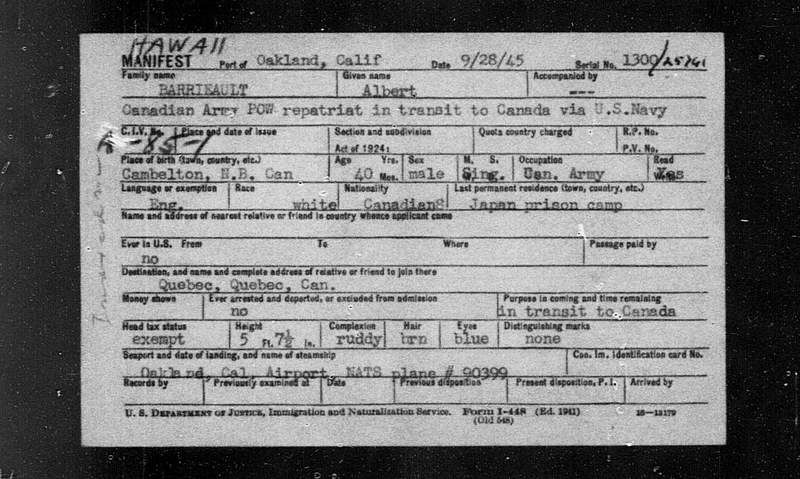 HAWAII
MANIFEST Port of Oakland, Calif Date 9/28/45 Serial No. 1300/
Family name Given name Accompanied by
BARRIEAULT Albert ---
Canadian Army POW repatriat in transit to Canada via U.S.Navy
C.I.V. No. Place and date of issue Section and subdivision Quota country charged R.P. No.
Act of 1924: P.V. No.
Place of birth (town, country, etc.) Age Yrs. Sex M. S. Occupation Read
Cambelton, N.B. Can 40 Mos. male Sing. Can. Army Yes
Language or exemption Race Nationality Last permanent residence (town, country, etc.)
Eng. white Canadian8 Japan prison camp
Name and address of nearest relative or friend in country whence applicant came
Ever in U.S. From To Where Passage paid by
no
Destination, and name and complete address of relative or friend to join there
Quebec, Quebec, Can.
Money shown Ever arrested and deported, or excluded from admission Purpose in coming and time remaining
no in transit to Canada
Head tax status Height Complexion Hair Eyes Distinguishing marks
exempt 5 Ft. 7½ In. ruddy brn blue none
Seaport and date of landing, and name of steamship Con. Im. Identification card No.
Oakland, Cal, Airport, NATS plane # 90399
Records by Previously examined at Date Previous disposition Present disposition, P. I. Arrived by
U. S. Department of Justice, Immigration and Naturalization Service. Form I-448 (Ed. 1941) 16—13179
(Old 548)